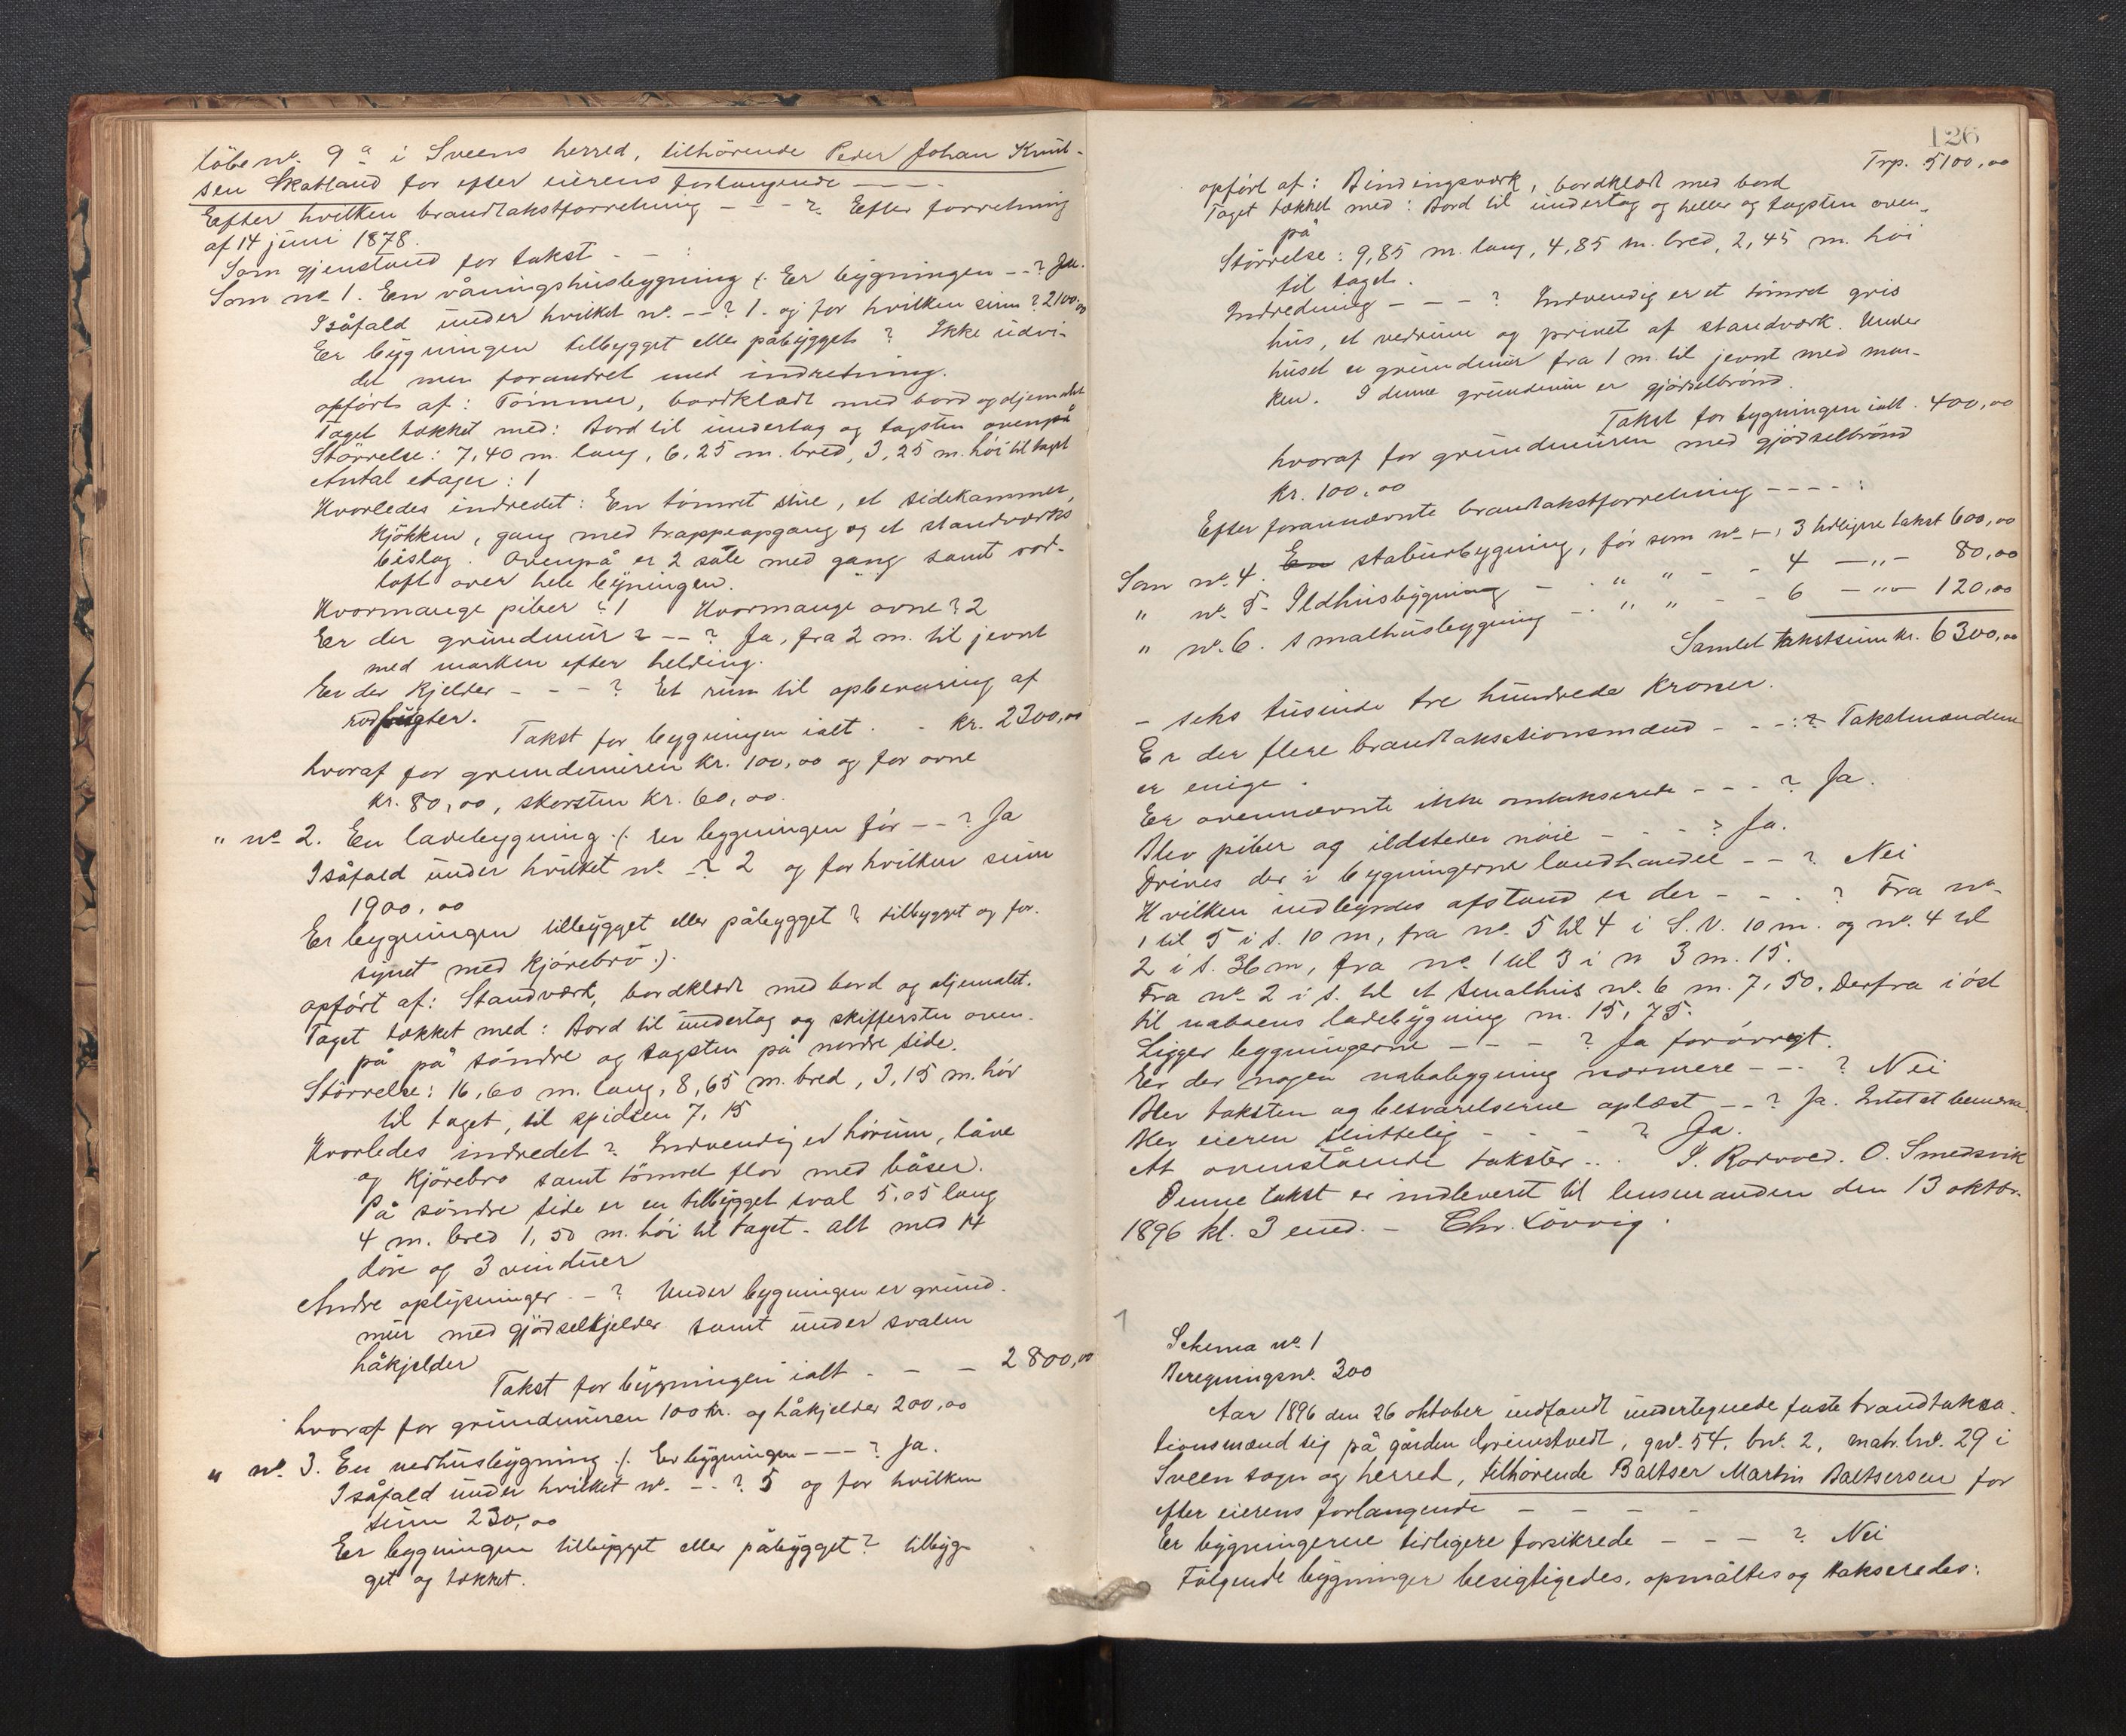 löbe no. 9a i Sveens herred, tilhörende Peder Johan Knut-
sen Skatland for efter eierens forlangende ----.
Eefter hvilken brandtakstforretning --- ? Efter forretning
af 14 juni 1878.
Som gjenstand for takst - - :
Som no 1. En våningshusbygning ⁒ Er bygningen --? Ja.
Isåfald under hvilket no. --? 1. og for hvilken sum? 2100,00
Er bygningen tilbygget eller påbygget? Ikke udvi-
det men forandret med indretning.
opfört af: Tömmer, bordklædt med bord og oljemalet
Taget tækket med: Bord til undertag og tagsten ovenpå
Störrelse: 7,40 m. lang, 6,25 m. bred, 3,25 m. höi til taget
Antal etager: 1
Hvorledes indredet: En tömret stue, et sidekammer,
kjökken, gang med trappeopgang og et standværks
bislag. Ovenpå er 2 sale med gang samt rod-
loft over hele bygningen.
Hvormange piber? 1 Hvormange ovne? 2
Eer der grundmur? --? Ja, fra 2 m. til jevnt
med marken efter helding.
Eer der kjelder - - - ? Et rum til opbevaring af
rodfrugter.
Takst for bygningen ialt . - kr. 2300,00
hvoraf for grundmuren kr. 100,00 og for ovne
kr. 80,00, skorsten kr. 60,00.
" no 2. En ladebygning ⁒ Er bygningen för --? Ja
Isåfald under hvilket no. -? 2 og for hvilken sum
1900,00
Er bygningen tilbygget eller påbygget? tilbygget og for-
synet med kjörebro ).
opfört af: Standværk, bordklædt med bord og oljemalet.
Taget tækket med: Bord til undertag og skiffersten oven-
på på söndre og tagsten på nordre side.
Störrelse: 16,60 m. lang, 8,65 m. bred, 3,15 m. höi
til taget, til spidsen 7,15
Hvorledes indredet? Indvendig er hörum, låve
og kjörebro samt tömret flor med båser.
På söndre side er en tilbygget sval 5,05 lang
4 m. bred 1,50 m. höi til taget - alt med 14
döre og 3 vinduer
Andre oplysninger - -? Under bygningen er grund-
mur med gjödselkjelder samt under svalen
håkjelder
Takst for bygningen ialt . - - 2800,00
hvoraf for grundmuren 100 kr. og håkjelder 200,00
" no. 3. En vedhusbygning ⁒ Er bygningen ---? Ja.
Isåfald under hvilket no. --? 5 og for hvilken
sum 230,00
Eer bygningen tilbygget eller påbygget? tilbyg-
get og tækket.
126
Trp. 5100,00
opfört af: Bindingsværk, bordklædt med bord
Taget tækket med: Bord til undertag og heller og tagsten oven-
på
Störrelse: 9,85 m. lang, 4,85 m. bred, 2,45 m. höi
til taget.
Indredning - - - ? Indvendig er et tömret gris
hus, et vedrum og privet af standværk. Under
huset er grundmur fra 1 m. til jevnt med mar-
ken. I denne grundmur er gjödselbrönd.
Takst for bygningen ialt . 400,00
hvoraf for grundmuren med gjödselbrönd
kr. 100,00
Efter forannævnte brandtakstforretning ----:
Som no. 4. En stabursbygning, för som no -, 3 tidligere takst 600,00
" no. 5. Ildhusbygning - - " " - - 4 -"- 80,00
" no. 6. Smalhusbygning - - " " - - 6 -"- 120,00
Samlet takstsum kr. 6300,00
- seks tusinde tre hundrede kroner.
Er der flere brandtaksationsmænd - - - ? Takstmændene
er enige.
Er ovennævnte ikke omtakserede - - - ? Ja.
Blev piber og ildsteder nöie - - - ? Ja.
Drives der i bygningerne landhandel - - ? Nei
Hvilken indbyrdes afstand er der - - . ? Fra no
1 til 5 i S. 10 m, fra no. 5 til 4 i S.V. 10 m. og no. 4 til
2 i S. 36 m, fra no. 1 til 3 i n 3 m. 15.
Fra no 2 i S. til et smalhus no. 6 m. 7,50. Derfra i öst
til naboens ladebygning m. 15,75.
Ligger bygningerne - - - ? Ja forövrigt.
Eer der nogen nabobygning nærmere - - . ? Nei
Blev taksten og besvarelserne oplæst --? Ja. Intet at bemærke.
Blev eieren skriftelig - - - ? Ja.
At ovenstående takster .. . O. Smedsvik
Denne takst er indleveret til lensmanden den 13 oktbr.
1896 kl. 3 emd. - Chr. Lövvig.
1
Schema no. 1
Beregningsno. 300
Aar 1896 den 26 oktober indfandt undertegnede faste brandtaksa-
tionsmænd sig på gården Grimstvedt, gno. 54, bno. 2, matr. lno. 29 i
Sveen sogn og herred, tilhörende Baltser Martin Baltsersen for
efter eierens forlangende - - - -
Er bygningerne tidligere forsikrede - - - ? Nei
Fölgende bygninger besigtigedes, opmåltes og takseredes: